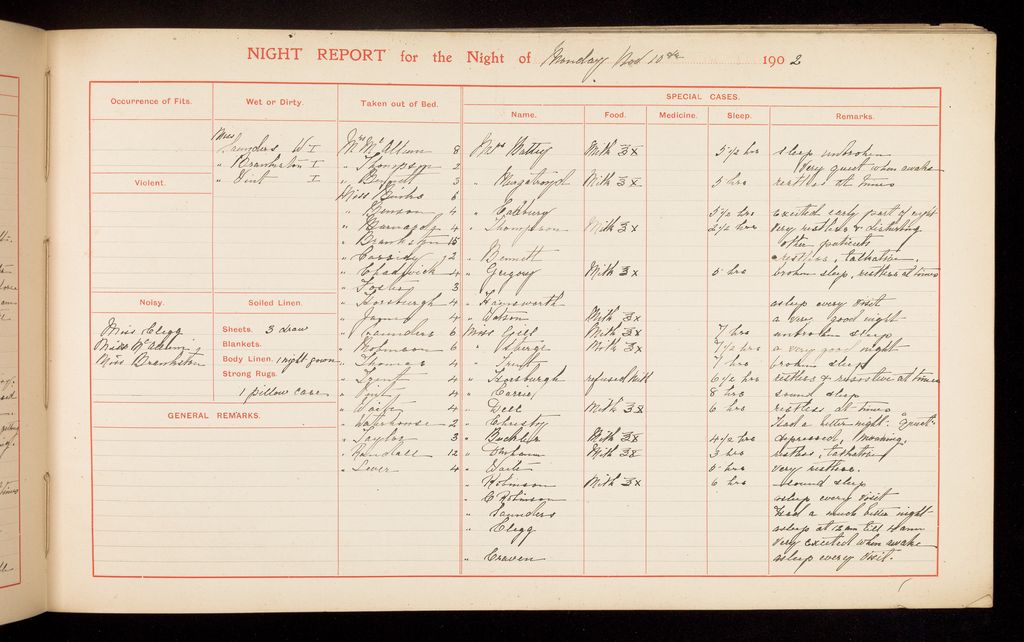 NIGHT REPORT for the Night of Monday Nov 10th 1902
Occurrence of Fits.
Wet or Dirty.
Miss Saunders W I
" Brankston I
" Vint I
Violent.
Noisy.
Miss Clegg
Miss McAllum
Miss Brankston
Soiled Linen.
Sheets. 3 draw
Blankets.
Body Linen. 1 night gown
Strong Rugs.
1 pillow case
GENERAL REMARKS.
Taken out of Bed.
Mrs McAllum 8
" Thompson 2
" Bennett 3
Miss Binks 6
" 4
" 4
" Brankston 15
" Cassidy 2
" Chadwick 4
" Foster 3
" Horsburgh 4
" 4
" Saunders 6
" Robinson 6
" Thomas 4
" 4
" Vint 4
" Waite 4
" Waterhouse 2
" Taylor 3
" Randall 12
" Lever 4
SPECIAL CASES.
Name. Food. Medicine. Sleep. Remarks.
Mrs Battey Milk 3x 5 1/2 hrs sleep unbroken
Very quiet when awake
" Murgatroyd Milk 3x 5 hrs restless at times
" 5 1/2 hrs Excited early part of night
" Thompson Milk 3x 2 1/2 hrs Very restless & disturbing
other patients
" Bennett restless, talkative.
" Gregory Milk 3x 5 hrs broken sleep, restless at times
" Hainsworth asleep every visit
" Watson Milk 3x a very good night
Miss Gill Milk 3x 7 hrs unbroken sleep
" Milk 3x 7 1/2 hrs a very good night
" 7 hrs broken sleep
" Horsburgh refused milk 6 1/2 hrs restless & resistive at times
" Carrie 8 hrs sound sleep
" Dell Milk 38 6 hrs restless at times
" Christy Had a better night. "quiet"
" Buckler Milk 3x 4 1/2 hrs depressed, moaning.
" Milk 38 3 hrs restless, talkative
" Waite 5 hrs very restless.
" Robinson Milk 3x 6 hrs sound sleep
" C Robinson asleep every visit
" Saunders Had a much better night
" Clegg asleep at 12 am till 4 am
Very excited when awake
" Craven asleep every visit.